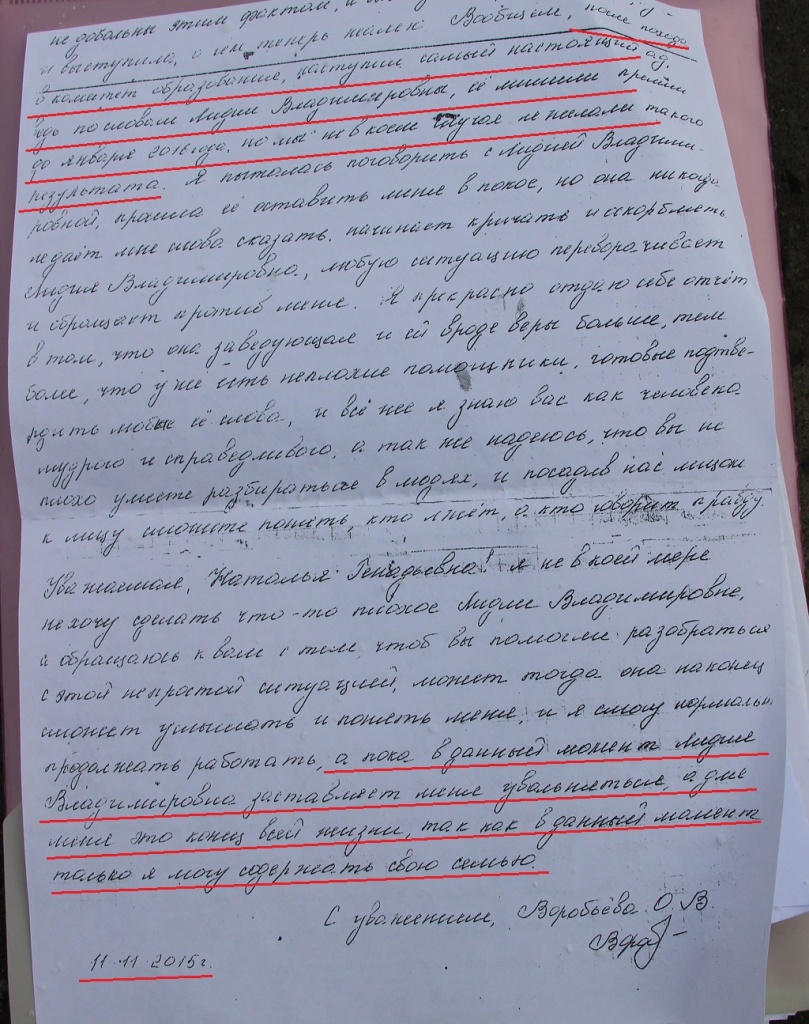 недовольны этим фактом, и
и выступила, о чем теперь жалею. Вообщем, после похода
в комитет образование, наступил самый настоящий ад,
ведь по словам Лидии Владимировны, её лишили премии
до января 2016 года, но мы не в коем случае не желали такого
результата. Я пыталась поговорить с Лидией Владими-
ровной, просила её оставить меня в покое, но она никогда
не даёт мне слова сказать, начинает кричать и оскорблять.
Лидия Владимировна, любую ситуацию переворачивает
и обращает против меня. Я прекрасно отдаю себе отчёт
в том, что она заведующая и ей вроде веры больше, тем
более, что уже есть неплохие помощники, готовые подтве-
рдить любые её слова, и всё же я знаю вас как человека
мудрого и справедливого, а так же надеюсь, что вы не
плохо умеете разбираться в людях, и посадив нас лицом
к лицу сможите понять, кто лжёт, а кто говорит правду.
Уважаемая, Наталья Генадьевна! я не в коей мере
не хочу сделать что-то плохое Лидии Владимировне,
а обращаюсь к вам с тем, чтоб вы помогли разобраться
с этой непростой ситуацией, может тогда она наконец
сможет услышать и понять меня, и я смогу нормально
продолжать работать, а пока в данный момент Лидия
Владимировна заставляет меня увольняться, а для
меня это конец всей жизни, так как в данный момент
только я могу содержать свою семью.
С уважением, Воробьёва О.В
11.11.2015г.